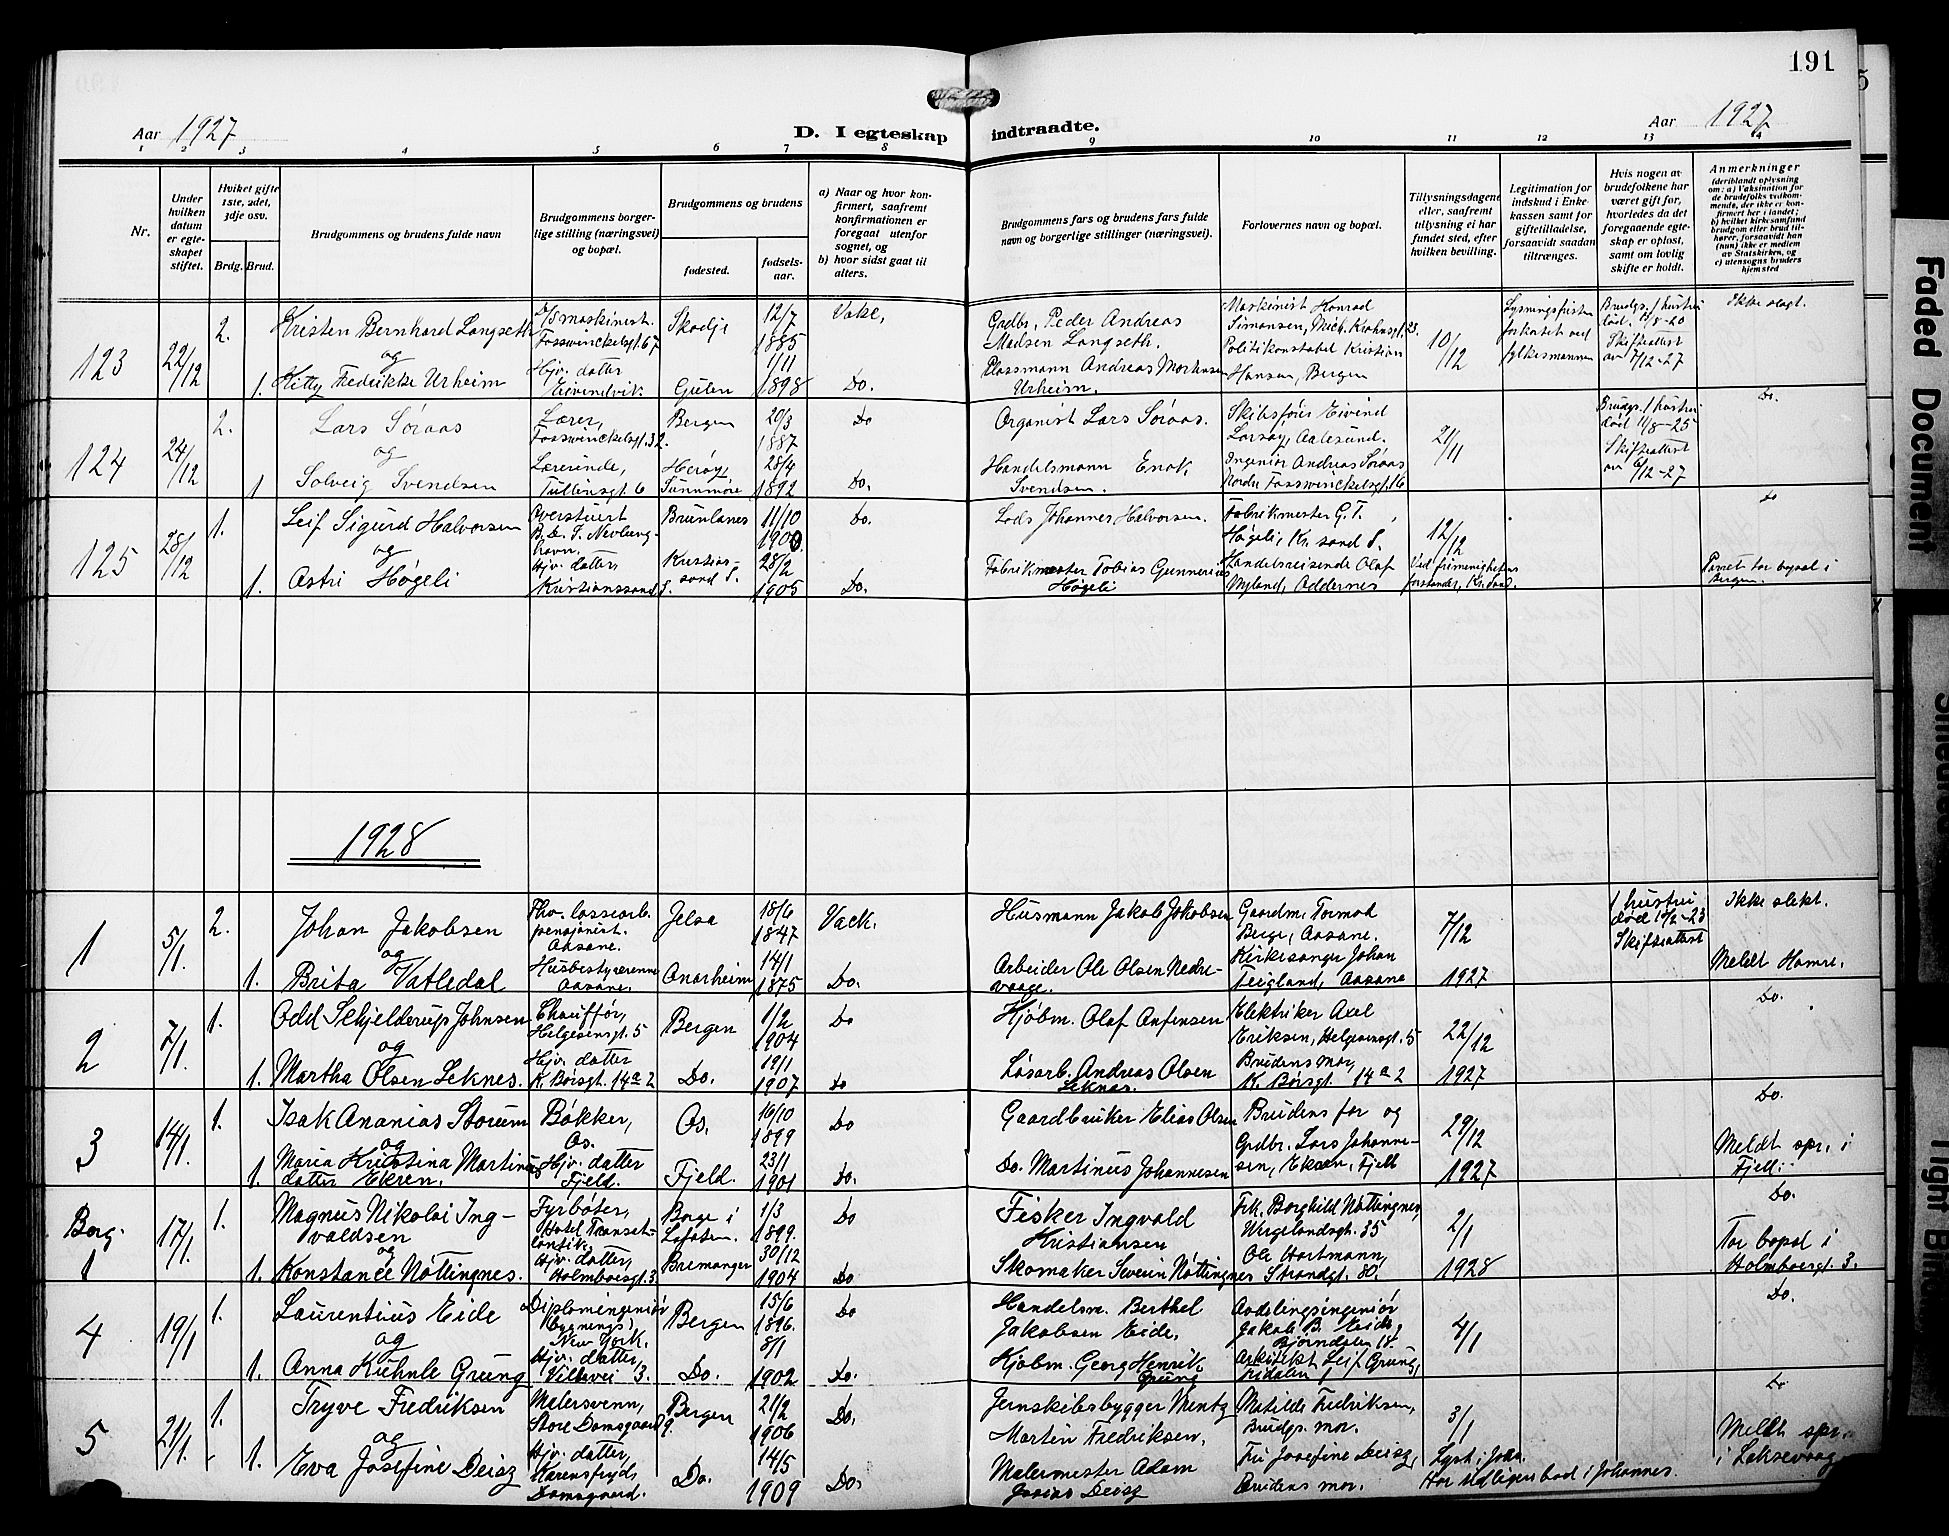 191
Aar 1927
D. I egteskap indtraadte.
Aar 1927
1 2 3 4 5 6 7 8 9 10 11 12 13 14
Nr.
Under hvilken datum er egteskapet stiftet.
Hviket gifte 1ste, 2det, 3dje osv.
Brdg. Brud.
Brudgommens og brudens fulde navn
Brudgommens borgerlige stilling (næringsvei) og bopæl.
Brudgommens og brudens
fødested.
fødselsaar.
a) Naar og hvor konfirmert, saafremt konfirmationen er foregaat utenfor sognet, og
b) hvor sidst gaat til alters.
Brudgommens fars og brudens fars fulde navn og borgerlige stillinger (næringsvei).
Forlovernes navn og bopæl.
Tillysningsdagene eller, saafremt tillysning ei har fundet sted, efter hvilken bevilling.
Legitimation for indskud i Enkekassen samt for giftetilladelse, forsaavidt saadan tiltrænges.
Hvis nogen av brudefolkene har været gift før, hvorledes da det foregaaende egteskap er opløst, samt om lovlig skifte er holdt.
Anmerkninger
(deriblandt oplysning om: a) Vaksination for de brudefolks vedkommende, der ikke er konfirmert her i landet; b) hvilket kirkesamfund brudgom eller brud tilhører, forsaavidt han (hun) ikke er medlem av Statskirken, og c) utensogns bruders hjemsted
123 22/12 2. Kristen Bernhard Langseth
D/S maskinist. Fosswinckelsgt. 67
Skodje 12/7 1885
og
1. Kitty Fredrikke Urheim
Hjv. datter Eivindvik
Gulen 1/11 1898 Do.
Grdbr. Peder Andreas Madsen Langseth.
Plassmann Andreas Urheim.
Maskinist Konrad Simonsen, Mich. Krohnsgt. 23.
Politikonstabel Kristian Hansen, Bergen
10/12
Lysningsfristen forkortet ved fylkesmannen
Brudgs. 1 hustru død. Skifteattest av 7/12-27
Ikke slegt.
124 24/12 2. Lars Søraas
Lærer, Fosswinckelsgt. 32.
Bergen 20/3 1887 Do
og
1 Solveig Svendsen
Lærerinde, Tullinsgt. 6
Herøy, Sunnmøre 28/4 1892 Do.
Organist Lars Søraas.
Handelsmann Enok Svendsen.
Skibsfører Eivind Aalesund.
Ingeniør Andreas Søraas Nordre Fosswinckelsgt. 16
21/11
Brudgs. 1 hustru død 11/8-25
Skifteattest av 6/12-27
Do.
125 28/12 1. Leif Sigurd Halvorsen
Overstuert B.D.S. Nevlunghavn.
Brunlanes 11/10 1900. Do.
og
1. Astri Høgeli
Hjv. datter, Kristianssand S.
Kristianssand S. 28/2 1905 Do.
Lods Johannes Halvorsen.
Fabrikmester Tobias Gunnerius Høgeli
Fabrikmester G. T. Høgeli, Kr.sand S.
Handelsreisende Olaf Nyland, Oddernes
12/12
Ved frimenighetens forstander, Kr.sand.
Do
Paret tar bopæl i Bergen.
1928
1 5/1 2. Johan Jakobsen
Fhv. lossearb. pensjonist. Aasane.
Jelsa 18/6 1847 Vack.
og
1. Brita Vatledal
Husbestyrerinne Aasane.
14/1 1875 Do.
Husmann Jakob Jakobsen
Arbeider Ole Olsen Nedrevaage.
Gaardm. Tormod Berge, Aasane.
Kirkesanger Johan Teigland, Aasane
7/12 1927
1 hustru død
Skifteattest
Ikke slekt.
Meldt Hamre.
2 7/1. 1. Odd Schjelderup Johnsen
Chauffør, Helgesensgt. 5
Bergen 1/2 1904 Do
og
1. Martha Olsen Leknes.
Hjv. datter K. Børsgt. 14a 2
Do. 19/1 1907 Do
Hjøbm. Olaf Anfensen
Løsarb. Andreas Olsen Leknes.
Elektriker Axel Eriksen, Helgesensgt. 5
Brudens mor, K. Børsgt. 14a 2
22/12 1927
Do.
3 14/1. 1. Isak Ananias Storum
Bøkker, Os.
Os. 16/10 1899 Do
og
1. Maria Kristina Martinusdatter Ekren.
Hjv. datter Fjeld.
Fjeld. 23/1 1901 Do.
Gaardbruker Elias Olsen
Do. Martinus Johannesen
Brudens far og Grdbr. Lars Johannesen, Ekren, Fjell
29/12 1927
Do.
Meldt spr. i Fjell.
Borg. 1 17/1. 1. Magnus Nikolai Ingvaldsen
Fyrbøter, Hotel Transatlantik,
Borge i Lofoten. 1/3 1899. Do
og
1. Konstance Nøttingnes.
Hjv. datter, Holmboesgt. 3
Bremanger 30/12 1904 Do
Fisker Ingvald Kristiansen
Skomaker Severin Nøttingnes
Frk. Borghild Nøttingnes, Wergelandsgt. 35
Ole Hartmann, Strandgt. 80.
2/1 1928
Do.
Tar bopel i Holmboesgt. 3.
4 19/1 1. Laurentius Eide
Diplomingeniør (bygnings), New York.
Bergen 15/6 1896. Do
og
1. Anna Kuhnle Grung
Hjv. datter,
Do. 8/1 1902 Do.
Handelsm. Berthel Jakobsen Eide.
Kjøbm. Georg Henrik Grung
Avdelingsingeniør Jakob B. Eide, Bjørndalen 18.
Arkitekt Leif Grung, Fridalen
4/1
Do.
5 21/1. 1. Tryve Fredriksen
Malersvenn, Store Damsgaard 9.
Bergen 21/2 1906 Do.
og
1. Eva Josefine Deisz
Hjv. datter, Karensfryd, Damsgaard.
Do. 14/5 1909 Do.
Jernskibsbygger Wentz Martin Fredriksen.
Malermester Adam Josias Deisz
Matilde Fredriksen, Brudgs. mor.
Fru Josefine Deisz, Brudens mor.
3/1
Lyst i Joh.
Har tidligere bod i Johannes.
Do
Meldt spr. i Laksevaag
Faded Document
Tight Binding